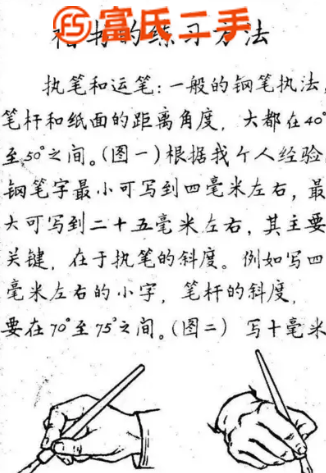 富氏二手
楷书的练习方法
执笔和运笔:一般的钢笔执法,
笔杆和纸面的距离角度,大都在40°
至50°之间。(图一)根据我个人经验,
钢笔字最小可写到四毫米左右,最
大可写到二十五毫米左右,其主要
关键,在于执笔的斜度。例如写四
毫米左右的小字,笔杆的斜度,
要在70°至75°之间。(图二) 写十毫米